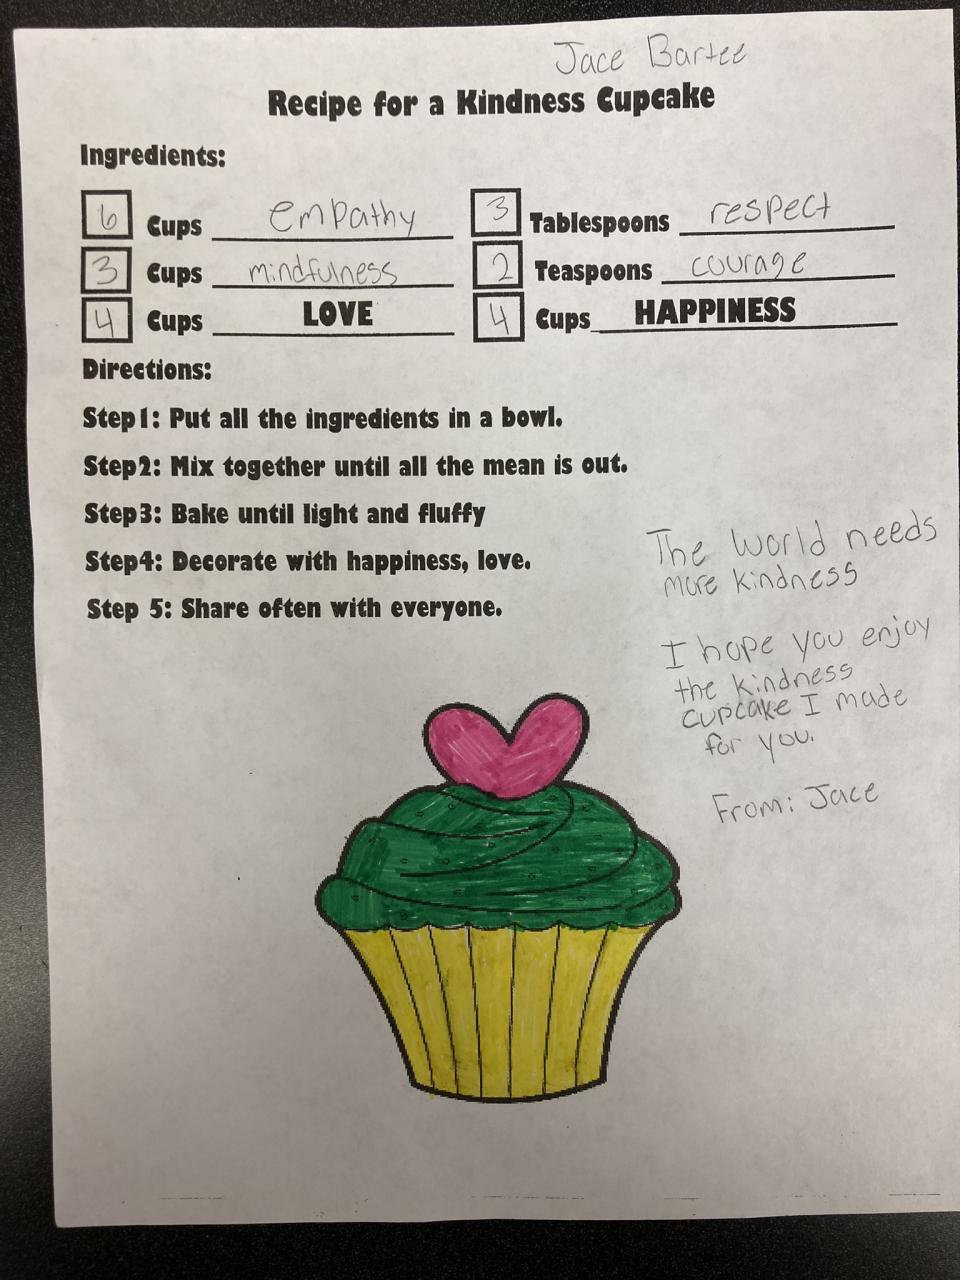 Jace Bartee
Recipe for a Kindness Cupcake
Ingredients:
6 Cups empathy 3 Tablespoons respect
3 Cups mindfulness 2 Teaspoons courage
4 Cups LOVE 4 Cups HAPPINESS
Directions:
Step1: Put all the ingredients in a bowl.
Step2: Mix together until all the mean is out.
Step3: Bake until light and fluffy
Step4: Decorate with happiness, love.
Step 5: Share often with everyone.
The world needs
more kindness
I hope you enjoy
the kindness
cupcake I made
for you.
From: Jace